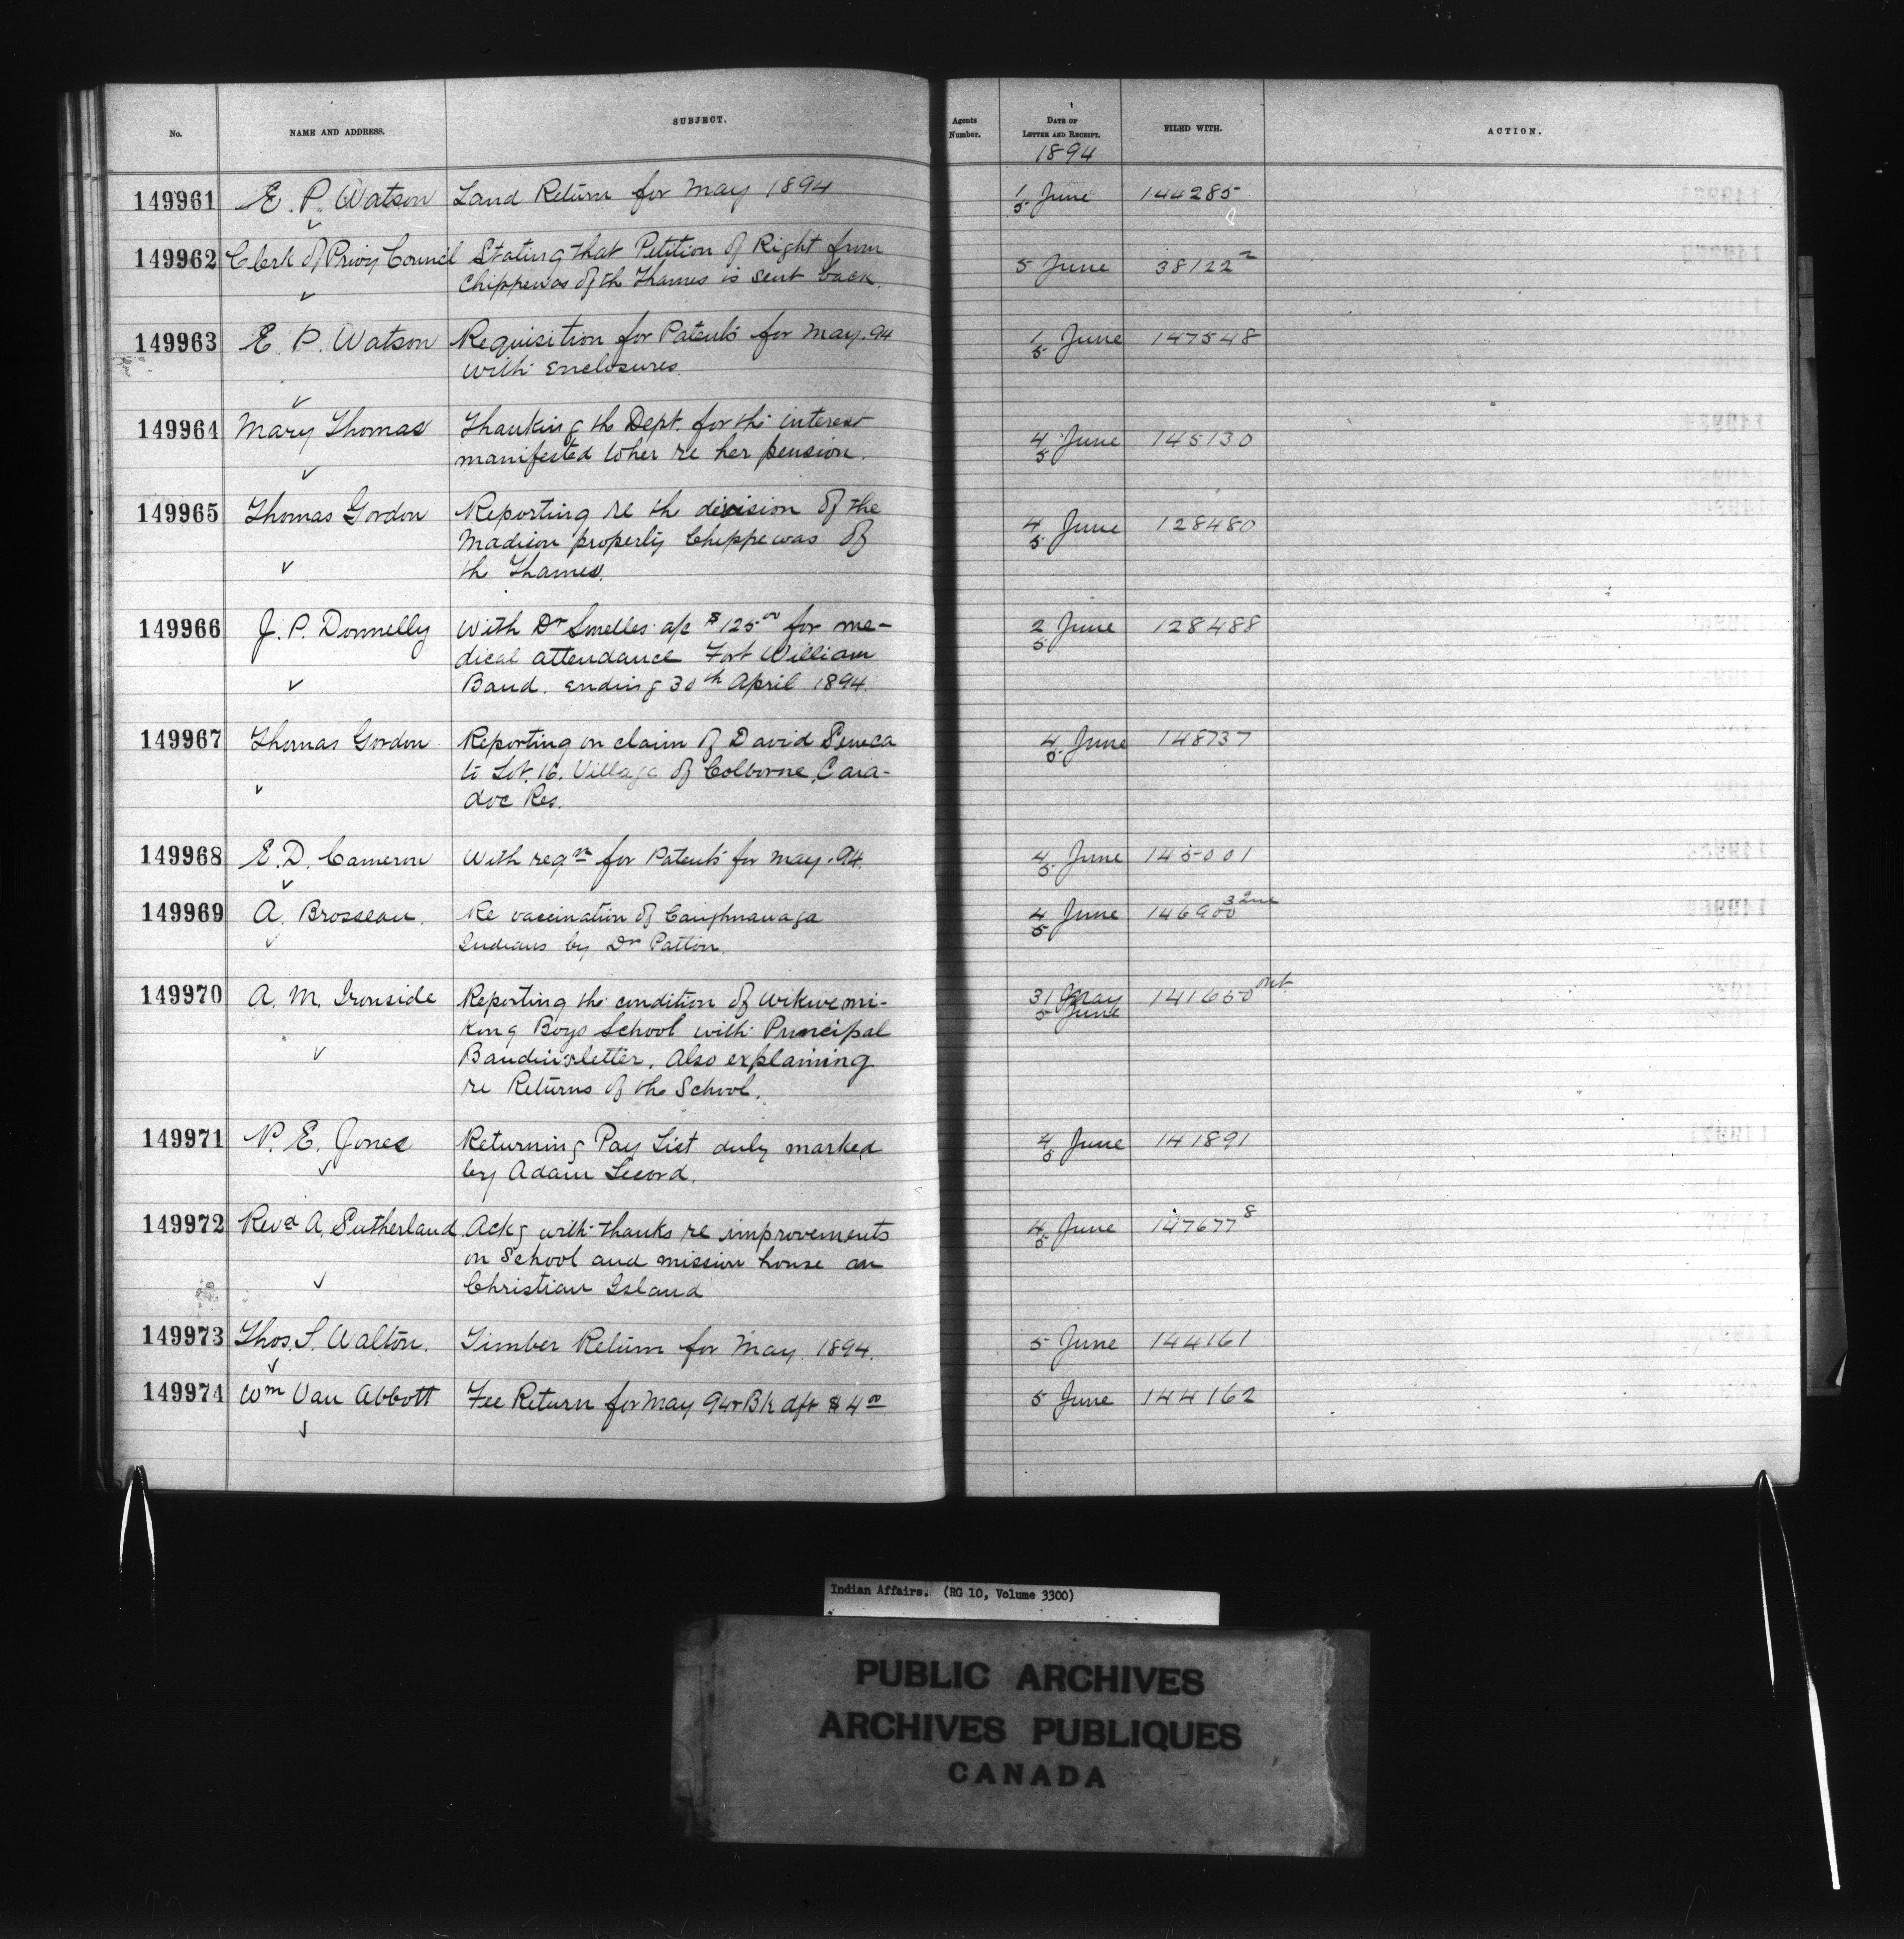 No. NAME AND ADDRESS. SUBJECT. Agents Number. DATE OF LETTER AND RECEIPT. FILED WITH. ACTION.
1894
149961 E. P. Watson Land Return for May 1894 1/5 June 144285
149962 Clerk of Privy Council Stating that Petition of Right from 5 June 38122²
Chippewas of th Thames is sent back.
149963 E. P. Watson Requisition for Patents for May. 94 1/5 June 147548
with enclosures.
149964 Mary Thomas Thanking the Dept. for the interest 4/5 June 145130
manifested to her re her pension.
149965 Thomas Gordon Reporting re th division of the 4/5 June 128480
property Chippewas of
th Thames.
149966 J. P. Donnelly With Dr Smelles a/c $125.00 for me- 2/5 June 128488
dical attendance Fort William
Band. ending 30th April 1894.
149967 Thomas Gordon Reporting on claim of David Seneca 4/5 June 148737
to Lot. 16. Village of Colborne, Cara-
doc Res.
149968 E. D. Cameron With reqn for Patents for May. 94. 4/5 June 145001
149969 A. Brosseau. Re vaccination of Caughnawaga 4/5 June 146900
Indians by Dr Patton.
149970 A. M. Ironside Reporting the condition of Wikwemi- 31 May 141650
5 June
kong Boys School with Principal
letter. Also explaining
re Returns of the School.
149971 P. E. Jones Returning Pay List duly marked 4/5 June 141891
by Adam
149972 Revd A. Sutherland Ackg with thanks re improvements 4/5 June 147677⁸
on School and mission house on
Christian Island
149973 Thos. S. Walton. Timber Return for May. 1894. 5 June 144161
149974 Wm Van Abbott Fee Return for May 94 & Bk dft $4.00 5 June 144162
Indian Affairs. (RG 10, Volume 3300)
PUBLIC ARCHIVES
ARCHIVES PUBLIQUES
CANADA